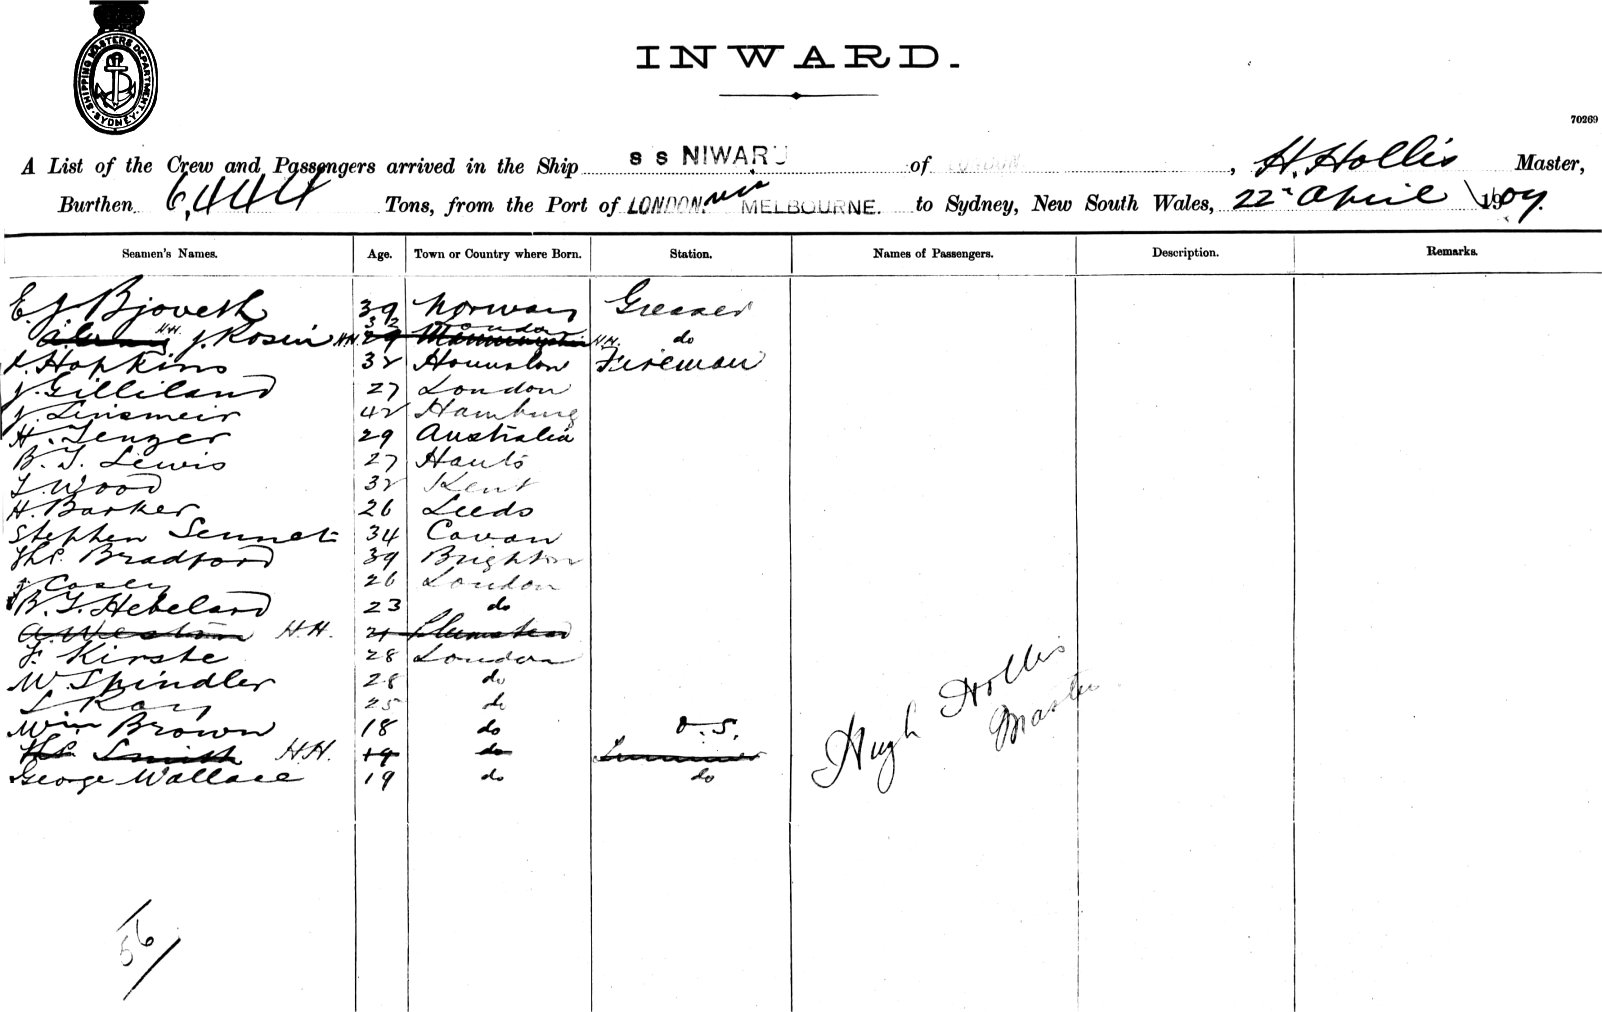 SHIPPING MASTERS DEPARTMENT. SYDNEY.
INWARD.
70269
A List of the Crew and Passengers arrived in the Ship S S NIWARU of LONDON, H. Hollis Master,
Burthen 6,444 Tons, from the Port of LONDON. via MELBOURNE. to Sydney, New South Wales, 22nd April 1904.
Seamen's Names. Age. Town or Country where Born. Station. Names of Passengers. Description. Remarks.
E. J. Bjoveth 39 Norway Greaser
32 London
H.H. J. Rosin H.H. 29 H.H. do
Hopkins 32 Hounslow Fireman
J. Gilliland 27 London
J. Linsmeir 42 Hamburg
H. Tenger 29 Australia
B. T. Lewis 27 Hants
T. Wood 32 Kent
H. Barker 26 Leeds
Stephen Sennet 34 Cavan
Thos. Bradford 39 Brighton
J. Casey 26 London
B. T. Hebelard 23 do
A. Weston H.H. 21 Plumstead
F. Kirste 28 London
W. Spindler 28 do
Kay 25 do
Wm Brown 18 do O.S.
Thos Smith H.H. 19 do Trimmer
George Wallace 19 do do
Hugh Hollis
Master
56